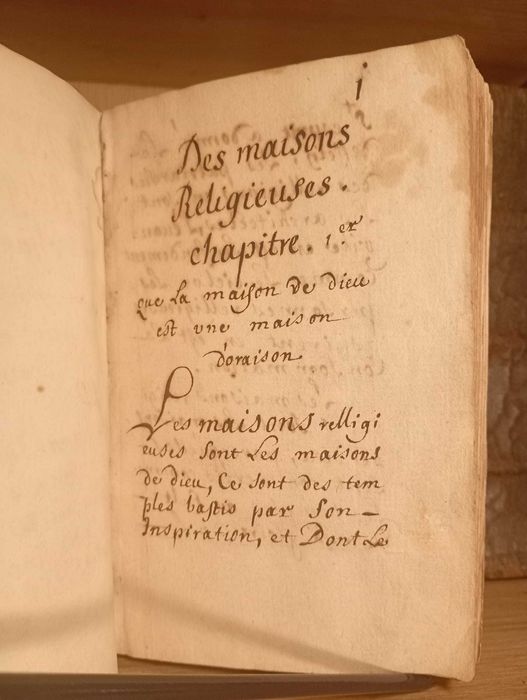 1
Des maisons
Religieuses.
chapitre. 1.er
que La maison de dieu
est vne maison
d'oraison
Les maisons relligi
euses sont Les maisons
de dieu, Ce sont des tem
ples bastis par son -
Inspiration, et Dont Le